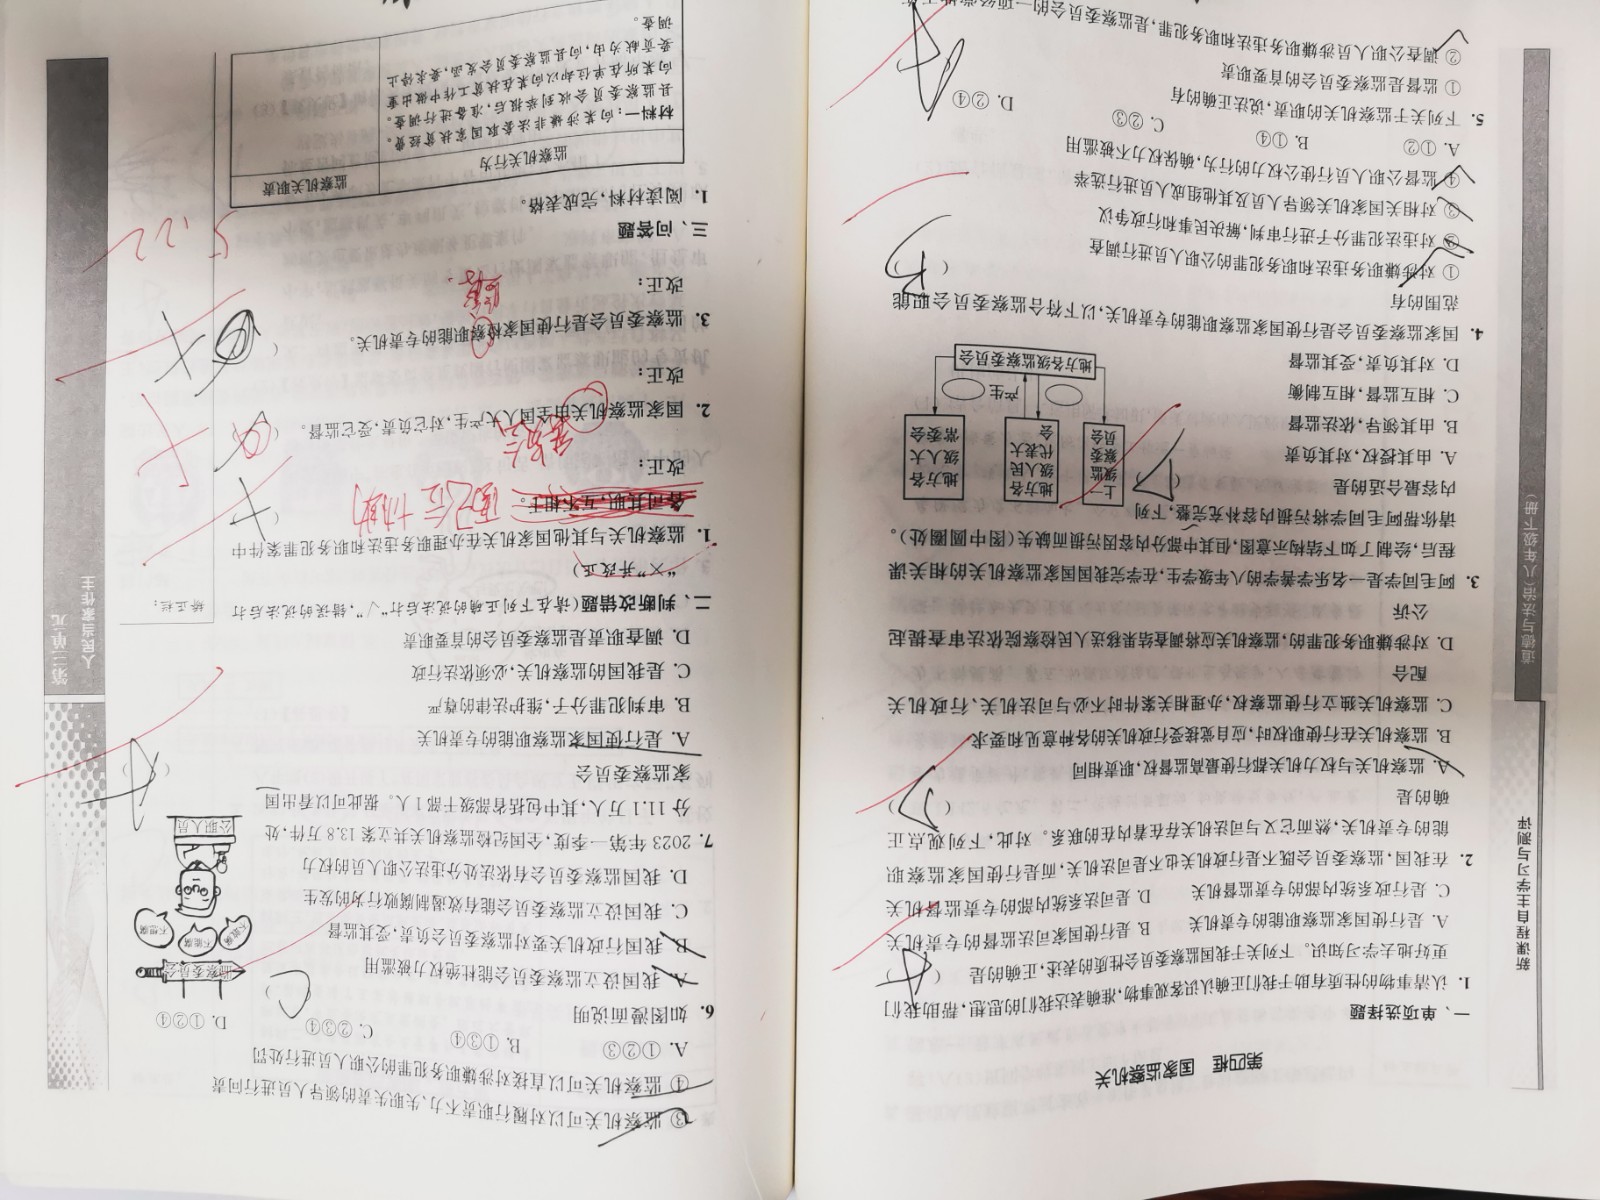 新课程自主学习与测评
道德与法治(八年级下册)
第四框 国家监察机关
一、单项选择题
1. 认清事物的性质有助于我们正确认识客观事物,准确表达我们的思想,帮助我们
更好地去学习知识。下列关于我国监察委员会性质的表述,正确的是 ( A )
A. 是行使国家监察职能的专责机关 B. 是行使国家司法监督的专责机关
C. 是行政系统内部的专责监督机关 D. 是司法系统内部的专责监督机关
2. 在我国,监察委员会既不是行政机关也不是司法机关,而是行使国家监察职
能的专责机关,然而它又与司法机关存在着内在的联系。对此,下列观点正
确的是 ( D )
A. 监察机关与权力机关都行使最高监督权,职责相同
B. 监察机关在行使职权时,应自觉接受行政机关的各种意见和要求
C. 监察机关独立行使监察权,办理相关案件时不必与司法机关、行政机关
配合
D. 对涉嫌职务犯罪的,监察机关应将调查结果移送人民检察院依法审查提起
公诉
3. 阿毛同学是一名乐学善学的八年级学生,在学完我国国家监察机关的相关课
程后,绘制了如下结构示意图,但其中部分内容因污损而缺失(图中圆圈处)。
请你帮阿毛同学将污损内容补充完整,下列
内容最合适的是 ( D )
A. 由其授权,对其负责
B. 由其领导,依法监督
C. 相互监督,相互制衡
D. 对其负责,受其监督
上一级监察委员会
地方各级人民代表大会
地方各级人大常委会
产生
地方各级监察委员会
4. 国家监察委员会是行使国家监察职能的专责机关,以下符合监察委员会职能
范围的有 ( )
① 对涉嫌职务违法和职务犯罪的公职人员进行调查
② 对违法犯罪分子进行审判,解决民事和行政争议
③ 对相关国家机关领导人员及其他组成人员进行选举
④ 监督公职人员行使公权力的行为,确保权力不被滥用
A. ①② B. ①④ C. ②③ D. ②④
5. 下列关于监察机关的职责,说法正确的有
① 监督是监察委员会的首要职责
② 调查公职人员涉嫌职务违法和职务犯罪,是监察委员会的一项经常性工作
③ 监察机关可以对履行职责不力、失职失责的领导人员进行问责
④ 监察机关可以直接对涉嫌职务犯罪的公职人员进行处罚
A. ①②③ B. ①③④ C. ②③④ D. ①②④
6. 如图漫画说明 ( C )
A. 我国设立监察委员会能杜绝权力被滥用
B. 我国行政机关要对监察委员会负责,受其监督
C. 我国设立监察委员会能有效遏制腐败行为的发生
D. 我国监察委员会有依法处分违法公职人员的权力
监察委员会
不敢腐
不能腐
不想腐
公职人员
7. 2023 年第一季度,全国纪检监察机关共立案 13.8 万件,处
分 11.1 万人,其中包括省部级干部 1 人。据此可以看出国
家监察委员会 ( A )
A. 是行使国家监察职能的专责机关
B. 审判犯罪分子,维护法律的尊严
C. 是我国的监察机关,必须依法行政
D. 调查职责是监察委员会的首要职责
二、判断改错题(请在下列正确的说法后打“√”,错误的说法后打
“×”并改正)
1. 监察机关与其他国家机关在办理职务违法和职务犯罪案件中
各司其职,互不相干。 ( × )
配合 协助
改正:
2. 国家监察机关由全国人大产生,对它负责,受它监督。 ( )
委员会
改正:
3. 监察委员会是行使国家检察职能的专责机关。 ( )
监察
改正:
三、问答题
1. 阅读材料,完成表格。
监察机关行为 监察机关职责
材料一:向某涉嫌非法套取国家扶贫经费。
县监察委员会收到举报后,准备进行调查。
向某所在单位却以向某在扶贫工作中做出重
要贡献为由,向县监察委员会发函,要求停止
调查。
第三单元
人民当家作主
矫正栏:
5.22